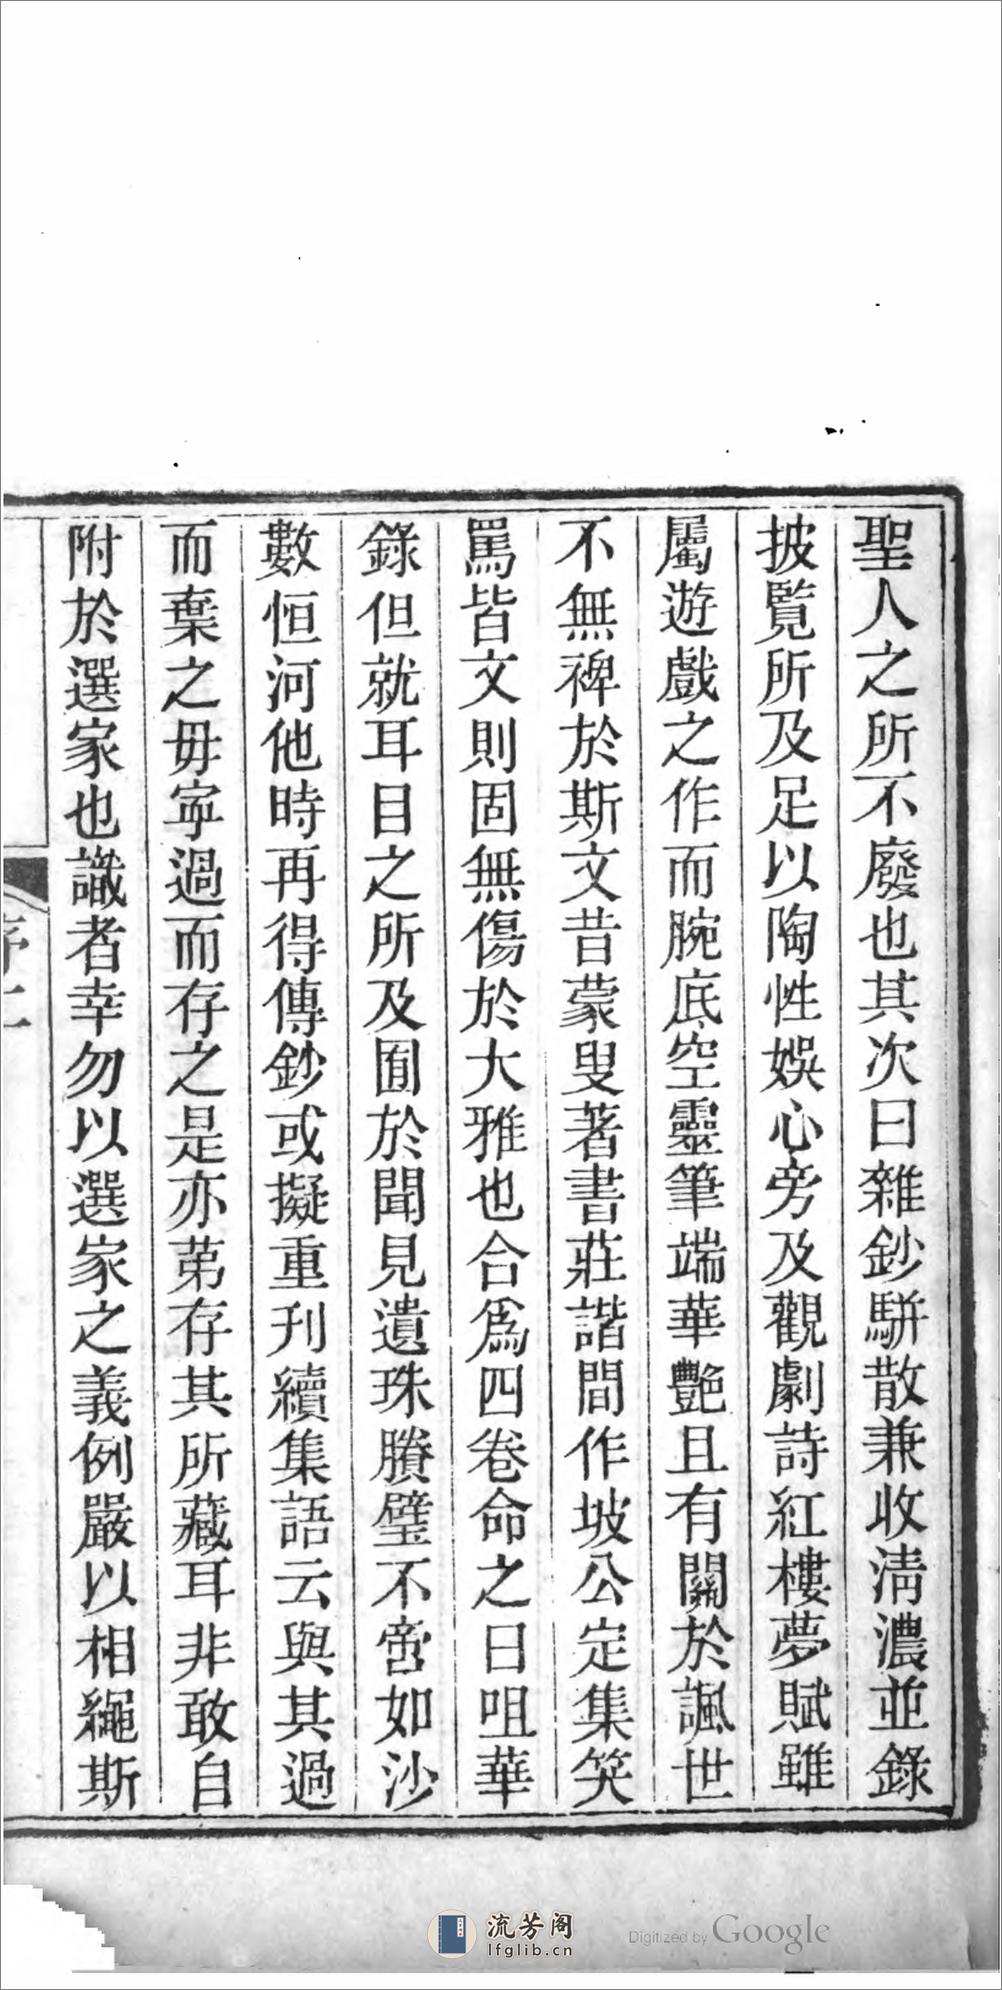 聖人之所不廢也其次曰雜鈔駢散兼收淸濃並錄
披覽所及足以陶性娛心旁及觀劇詩紅樓夢賦雖
屬遊戲之作而腕底空靈筆端華艷且有關於諷世
不無裨於斯文昔蒙叟著書莊諧間作坡公定集笑
罵皆文則固無傷於大雅也合爲四卷命之曰咀華
錄但就耳目之所及囿於聞見遺珠賸璧不啻如沙
數恒河他時再得傳鈔或擬重刊續集語云與其過
而棄之毋寧過而存之是亦苐存其所藏耳非敢自
附於選家也識者幸勿以選家之義例嚴以相繩斯
流芳阁
lfglib.cn
Digitized by Google